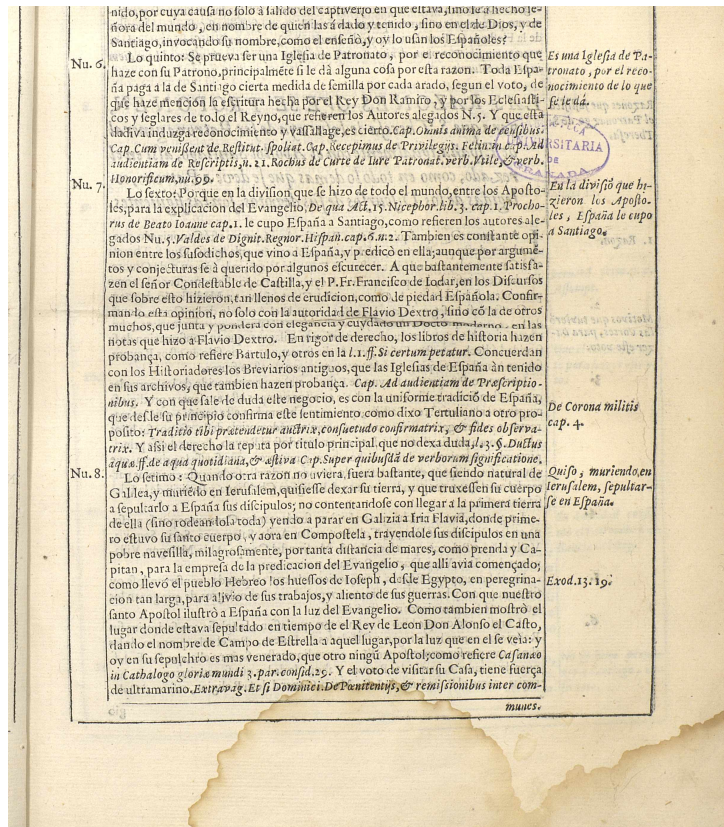 nido, por cuya causa no solo à salido del captiverio en que estava, sino le à hecho se-
ñora del mundo, en nombre de quien las á dado y tenido, sino en el de Dios, y de
Santiago, invocando su nombre, como el enseñò, y oy lo usan los Españoles?
Nu. 6.
Lo quinto: Se prueva ser una Iglesia de Patronato, por el reconocimiento que
haze con su Patrono, principalmẽte si le dà alguna cosa por esta razon. Toda Espa-
ña paga a la de Santiago cierta medida de semilla por cada arado, segun el voto, de
que haze mencion la escritura hecha por el Rey Don Ramiro, y por los Eclesiasti-
cos y seglares de todo el Reyno, que refieren los Autores alegados N. 5. Y que esta
dadiva induzga reconocimiento y vassallage, es cierto. Cap. Omnis anima de censibus.
Cap. Cum venissent de Restitut. spoliat. Cap. Recepimus de Privilegijs. Felin. in cap. Ad
audientiam de Rescriptis, n. 21. Rochus de Curte de Iure Patronat. verb. Vtile, & verb.
Honorificum, nu. 99.
Es una Iglesia de Pa-
tronato, por el reco-
nocimiento de lo que
se le dá.
Nu. 7.
Lo sexto: Porque en la division que se hizo de todo el mundo, entre los Aposto-
les, para la explicacion del Evangelio, De qua Act. 15. Nicephor. lib. 3. cap. 1. Procho-
rus de Beato Ioanne cap. 1. le cupo España a Santiago, como refieren los autores ale-
gados Nu. 5. Valdes de Dignit. Regnor. Hispan. cap. 6. n. 2. Tambien es constante opi-
nion entre los susodichos, que vino a España, y predicò en ella; aunque por argumẽ-
tos y conjecturas se à querido por algunos escurecer. A que bastantemente satisfa-
zen el señor Condestable de Castilla, y el P. Fr. Francisco de Iodar, en los Discursos
que sobre esto hizieron, tan llenos de erudicion, como de piedad Española. Confir-
mando esta opinion, no solo con la autoridad de Flavio Dextro, sino cõ la de otros
muchos, que junta y pondera con elegancia y cuydado un Docto moderno, en las
notas que hizo a Flavio Dextro. En rigor de derecho, los libros de historia hazen
probança, como refiere Bartulo, y otros en la l. 1. ff. Si certum petatur. Concuerdan
con los Historiadores los Breviarios antiguos, que las Iglesias de España àn tenido
en sus archivos, que tambien hazen probança. Cap. Ad audientiam de Præscriptio-
nibus. Y con que sale de duda este negocio, es con la uniforme tradiciõ de España,
que desde su principio confirma este sentimiento como dixo Tertuliano a otro pro-
posito: Traditio tibi prætendetur auctrix, consuetudo confirmatrix, & fides observa-
trix. Y assi el derecho la reputa por titulo principal que no dexa duda, l. 3. §. Ductus
aquæ. ff. de aqua quotidiana, & æstiva Cap. Super quibusdã de verborum significatione.
En la divisiõ que hi-
zieron los Aposto-
les, España le cupo
a Santiago.
De Corona militis
cap. 4.
Nu. 8.
Lo setimo: Quando otra razon no uviera, fuera bastante, que siendo natural de
Galilea, y muriẽdo en Ierusalem, quisiesse dexar su tierra, y que truxessen su cuerpo
a sepultarlo a España sus discipulos; no contentandose con llegar a la primera tierra
de ella (sino rodeandola toda) yendo a parar en Galizia a Iria Flavia, donde prime-
ro estuvo su santo cuerpo, y aora en Compostela, trayendole sus discipulos en una
pobre navesilla, milagrosamente, por tanta distancia de mares, como prenda y Ca-
pitan, para la empresa de la predicacion del Evangelio, que alli avia començado;
como llevó el pueblo Hebreo los huessos de Ioseph, desde Egypto, en peregrina-
cion tan larga, para alivio de sus trabajos, y aliento de sus guerras. Con que nuestro
santo Apostol ilustrò a España con la luz del Evangelio. Como tambien mostrò el
lugar donde estava sepultado en tiempo de el Rey de Leon Don Alonso el Casto,
dando el nombre de Campo de Estrella a aquel lugar, por la luz que en el se veia: y
oy en su sepulchro es mas venerado, que otro ningũ Apostol; como refiere Casanæo
in Cathalogo gloriæ mundi 3. par. consid. 29. Y el voto de visitar su Casa, tiene fuerça
de ultramarino. Extravag. Et si Dominici. De Pœnitentijs, & remissionibus inter com-
munes.
Quiso, muriendo, en
Ierusalem, sepultar-
se en España.
Exod. 13. 19.
VERSITARIA
DE
GRANADA